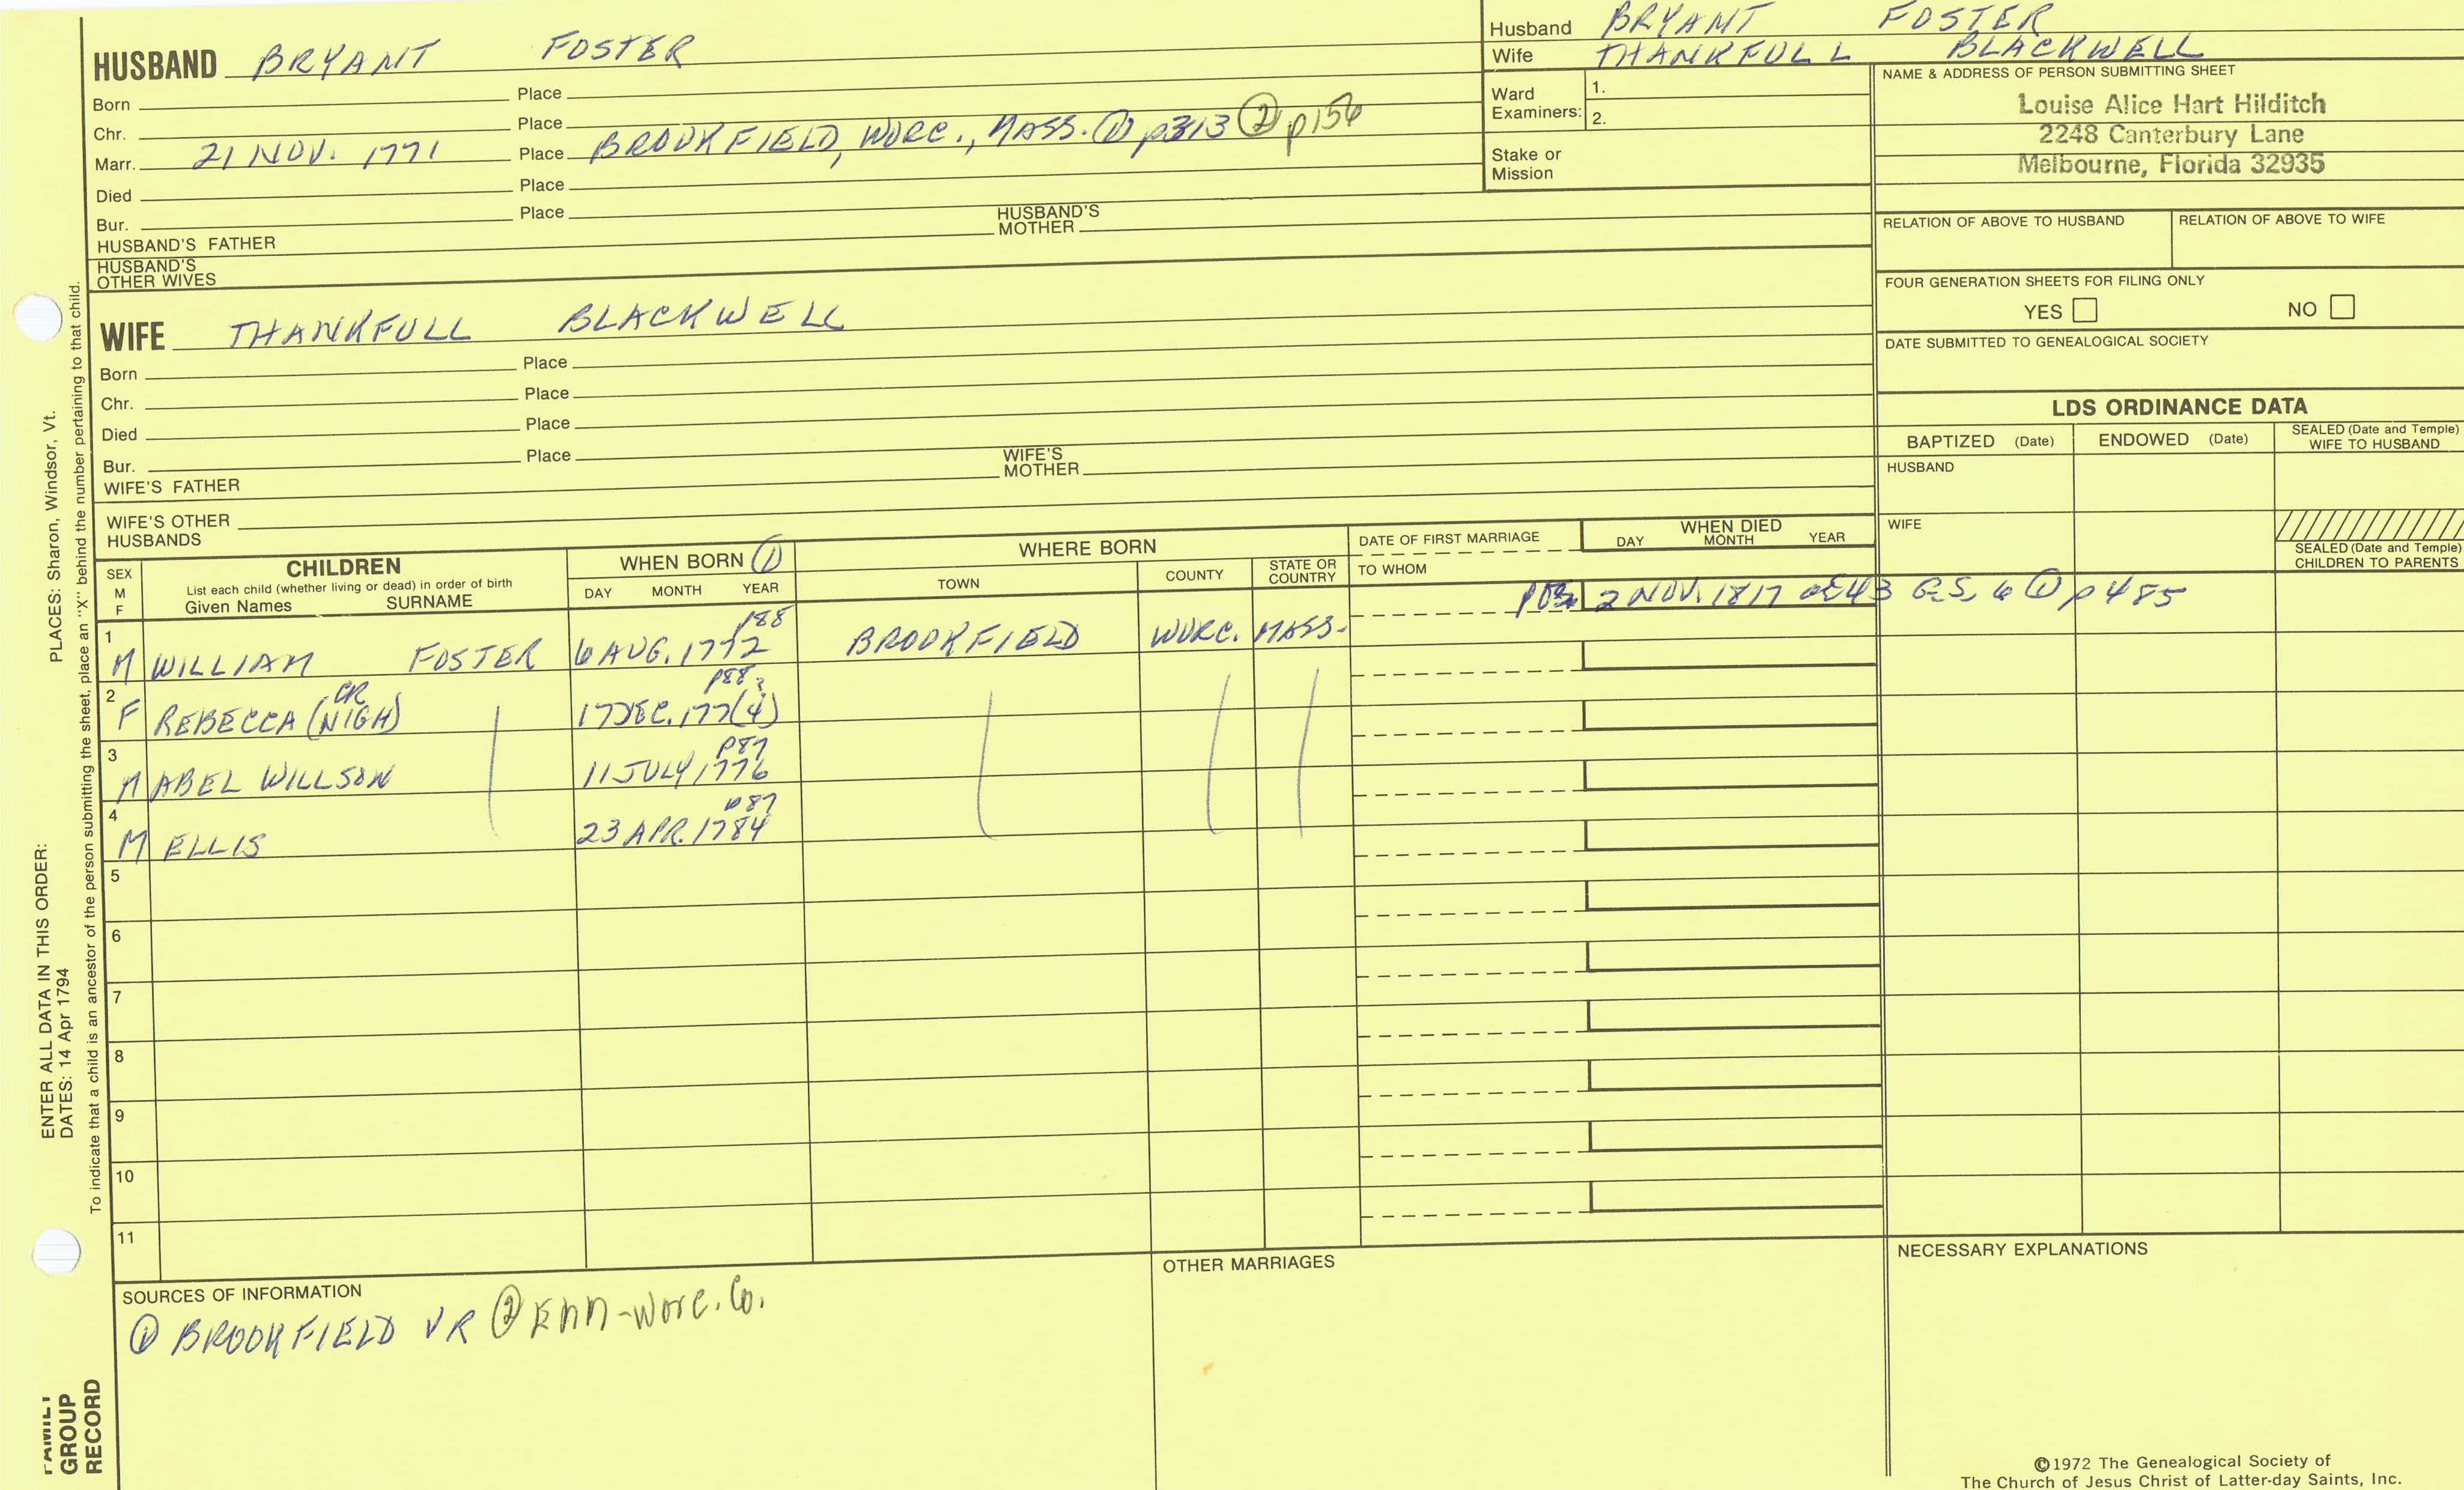 HUSBAND BRYANT FOSTER
Born Place
Chr. Place
Marr. 21 NOV. 1771 Place BROOKFIELD, WORC., MASS. ① p313 ② p156
Died Place
Bur. Place
HUSBAND'S FATHER HUSBAND'S MOTHER
HUSBAND'S OTHER WIVES
Husband BRYANT FOSTER
Wife THANKFULL BLACKWELL
Ward Examiners: 1.
2.
Stake or Mission
NAME & ADDRESS OF PERSON SUBMITTING SHEET
Louise Alice Hart Hilditch
2248 Canterbury Lane
Melbourne, Florida 32935
RELATION OF ABOVE TO HUSBAND RELATION OF ABOVE TO WIFE
FOUR GENERATION SHEETS FOR FILING ONLY
YES NO
DATE SUBMITTED TO GENEALOGICAL SOCIETY
WIFE THANKFULL BLACKWELL
Born Place
Chr. Place
Died Place
Bur. Place
WIFE'S FATHER WIFE'S MOTHER
WIFE'S OTHER HUSBANDS
LDS ORDINANCE DATA
BAPTIZED (Date) ENDOWED (Date) SEALED (Date and Temple) WIFE TO HUSBAND
HUSBAND
WIFE
SEALED (Date and Temple) CHILDREN TO PARENTS
SEX M F
CHILDREN
List each child (whether living or dead) in order of birth
Given Names SURNAME
WHEN BORN ①
DAY MONTH YEAR
WHERE BORN
TOWN COUNTY STATE OR COUNTRY
DATE OF FIRST MARRIAGE
TO WHOM
WHEN DIED
DAY MONTH YEAR
2 NOV. 1817 ae43 G.S. 6 ① p485
p88
1 M WILLIAM FOSTER 6 AUG. 1772 BROOKFIELD WORC. MASS.
CR p88
2 F REBECCA (NIGH) 17 DEC. 177(4)
p87
3 M ABEL WILLSON 11 JULY 1776
p87
4 M ELLIS 23 APR. 1784
5
6
7
8
9
10
11
SOURCES OF INFORMATION
① BROOKFIELD VR ② EMM-Worc. Co.
OTHER MARRIAGES
NECESSARY EXPLANATIONS
©1972 The Genealogical Society of
The Church of Jesus Christ of Latter-day Saints, Inc.
ENTER ALL DATA IN THIS ORDER:
DATES: 14 Apr 1794
PLACES: Sharon, Windsor, Vt.
To indicate that a child is an ancestor of the person submitting the sheet, place an "X" behind the number pertaining to that child.
FAMILY GROUP RECORD